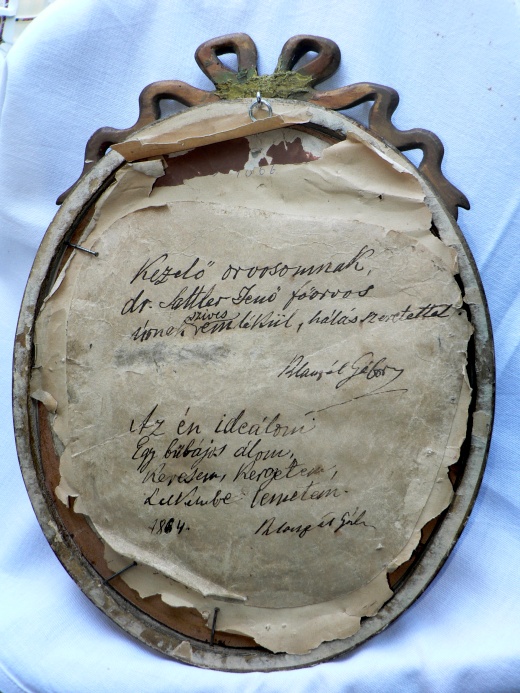 Kezelő orvosomnak,
dr. Sattler Jenő főorvos
úrnak szíves emlékül, hálás szeretettel
Gábor
Az én ideálom
Egy bűbájos álom,
Keresem, kergetem,
Lelkembe temetem.
1884.